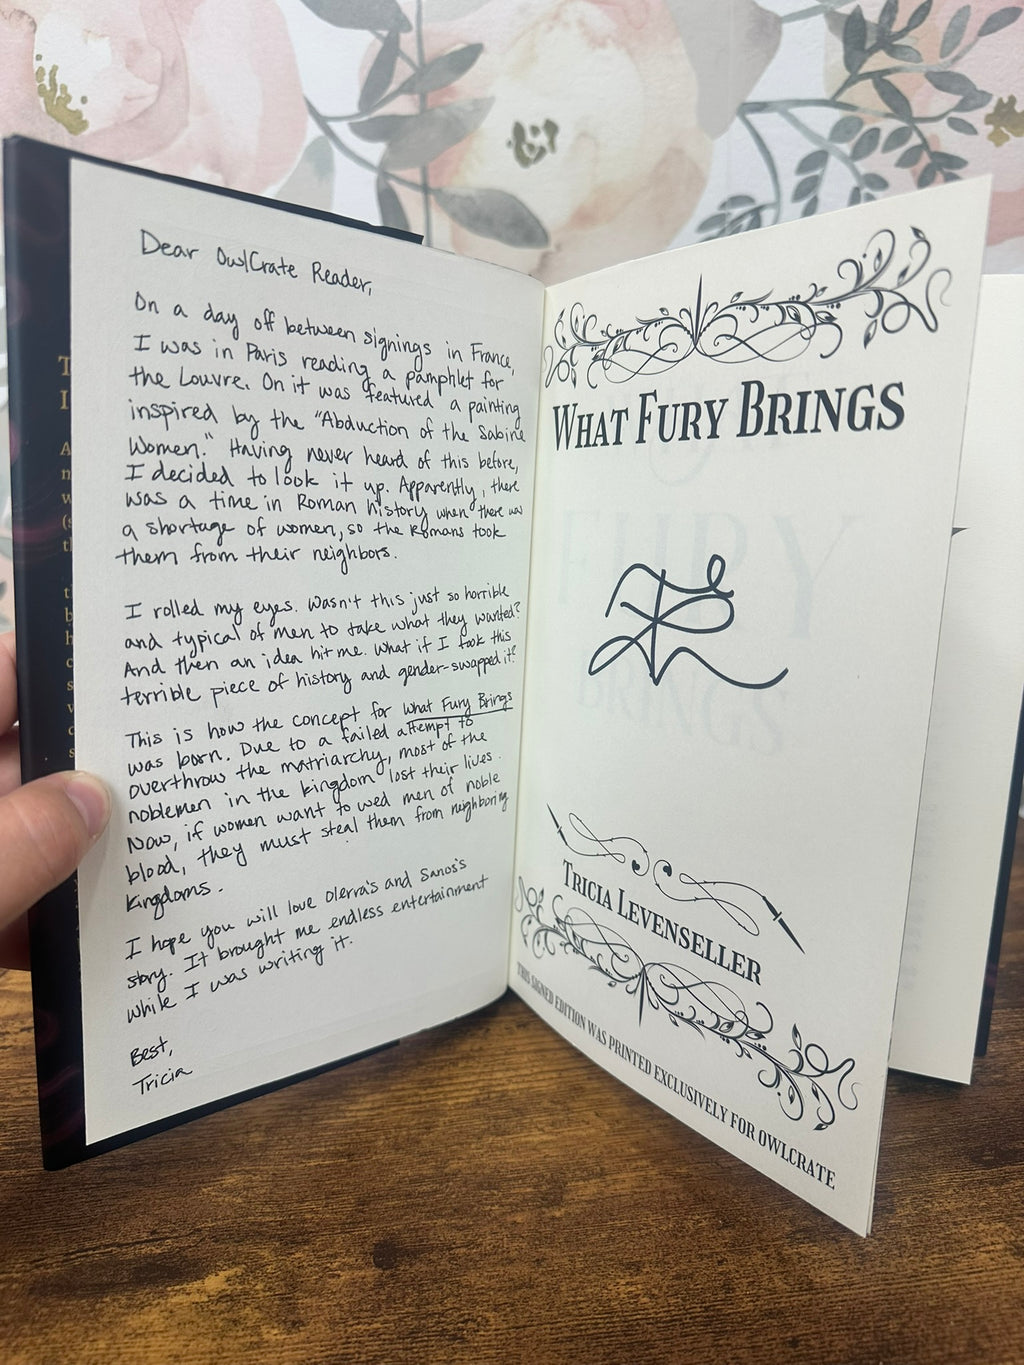 Dear OwlCrate Reader,
On a day off between signings in France,
I was in Paris reading a pamphlet for
the Louvre. On it was featured a painting
inspired by the "Abduction of the Sabine
Women." Having never heard of this before,
I decided to look it up. Apparently, there
was a time in Roman history when there was
a shortage of women, so the Romans took
them from their neighbors.
I rolled my eyes. Wasn't this just so horrible
and typical of men to take what they wanted?
And then an idea hit me. What if I took this
terrible piece of history and gender-swapped it?
This is how the concept for What Fury Brings
was born. Due to a failed attempt to
overthrow the matriarchy, most of the
noblemen in the kingdom lost their lives.
Now, if women want to wed men of noble
blood, they must steal them from neighboring
kingdoms.
I hope you will love Olerra's and Sanos's
story. It brought me endless entertainment
while I was writing it.
Best,
Tricia
WHAT FURY BRINGS
TRICIA LEVENSELLER
THIS SIGNED EDITION WAS PRINTED EXCLUSIVELY FOR OWLCRATE